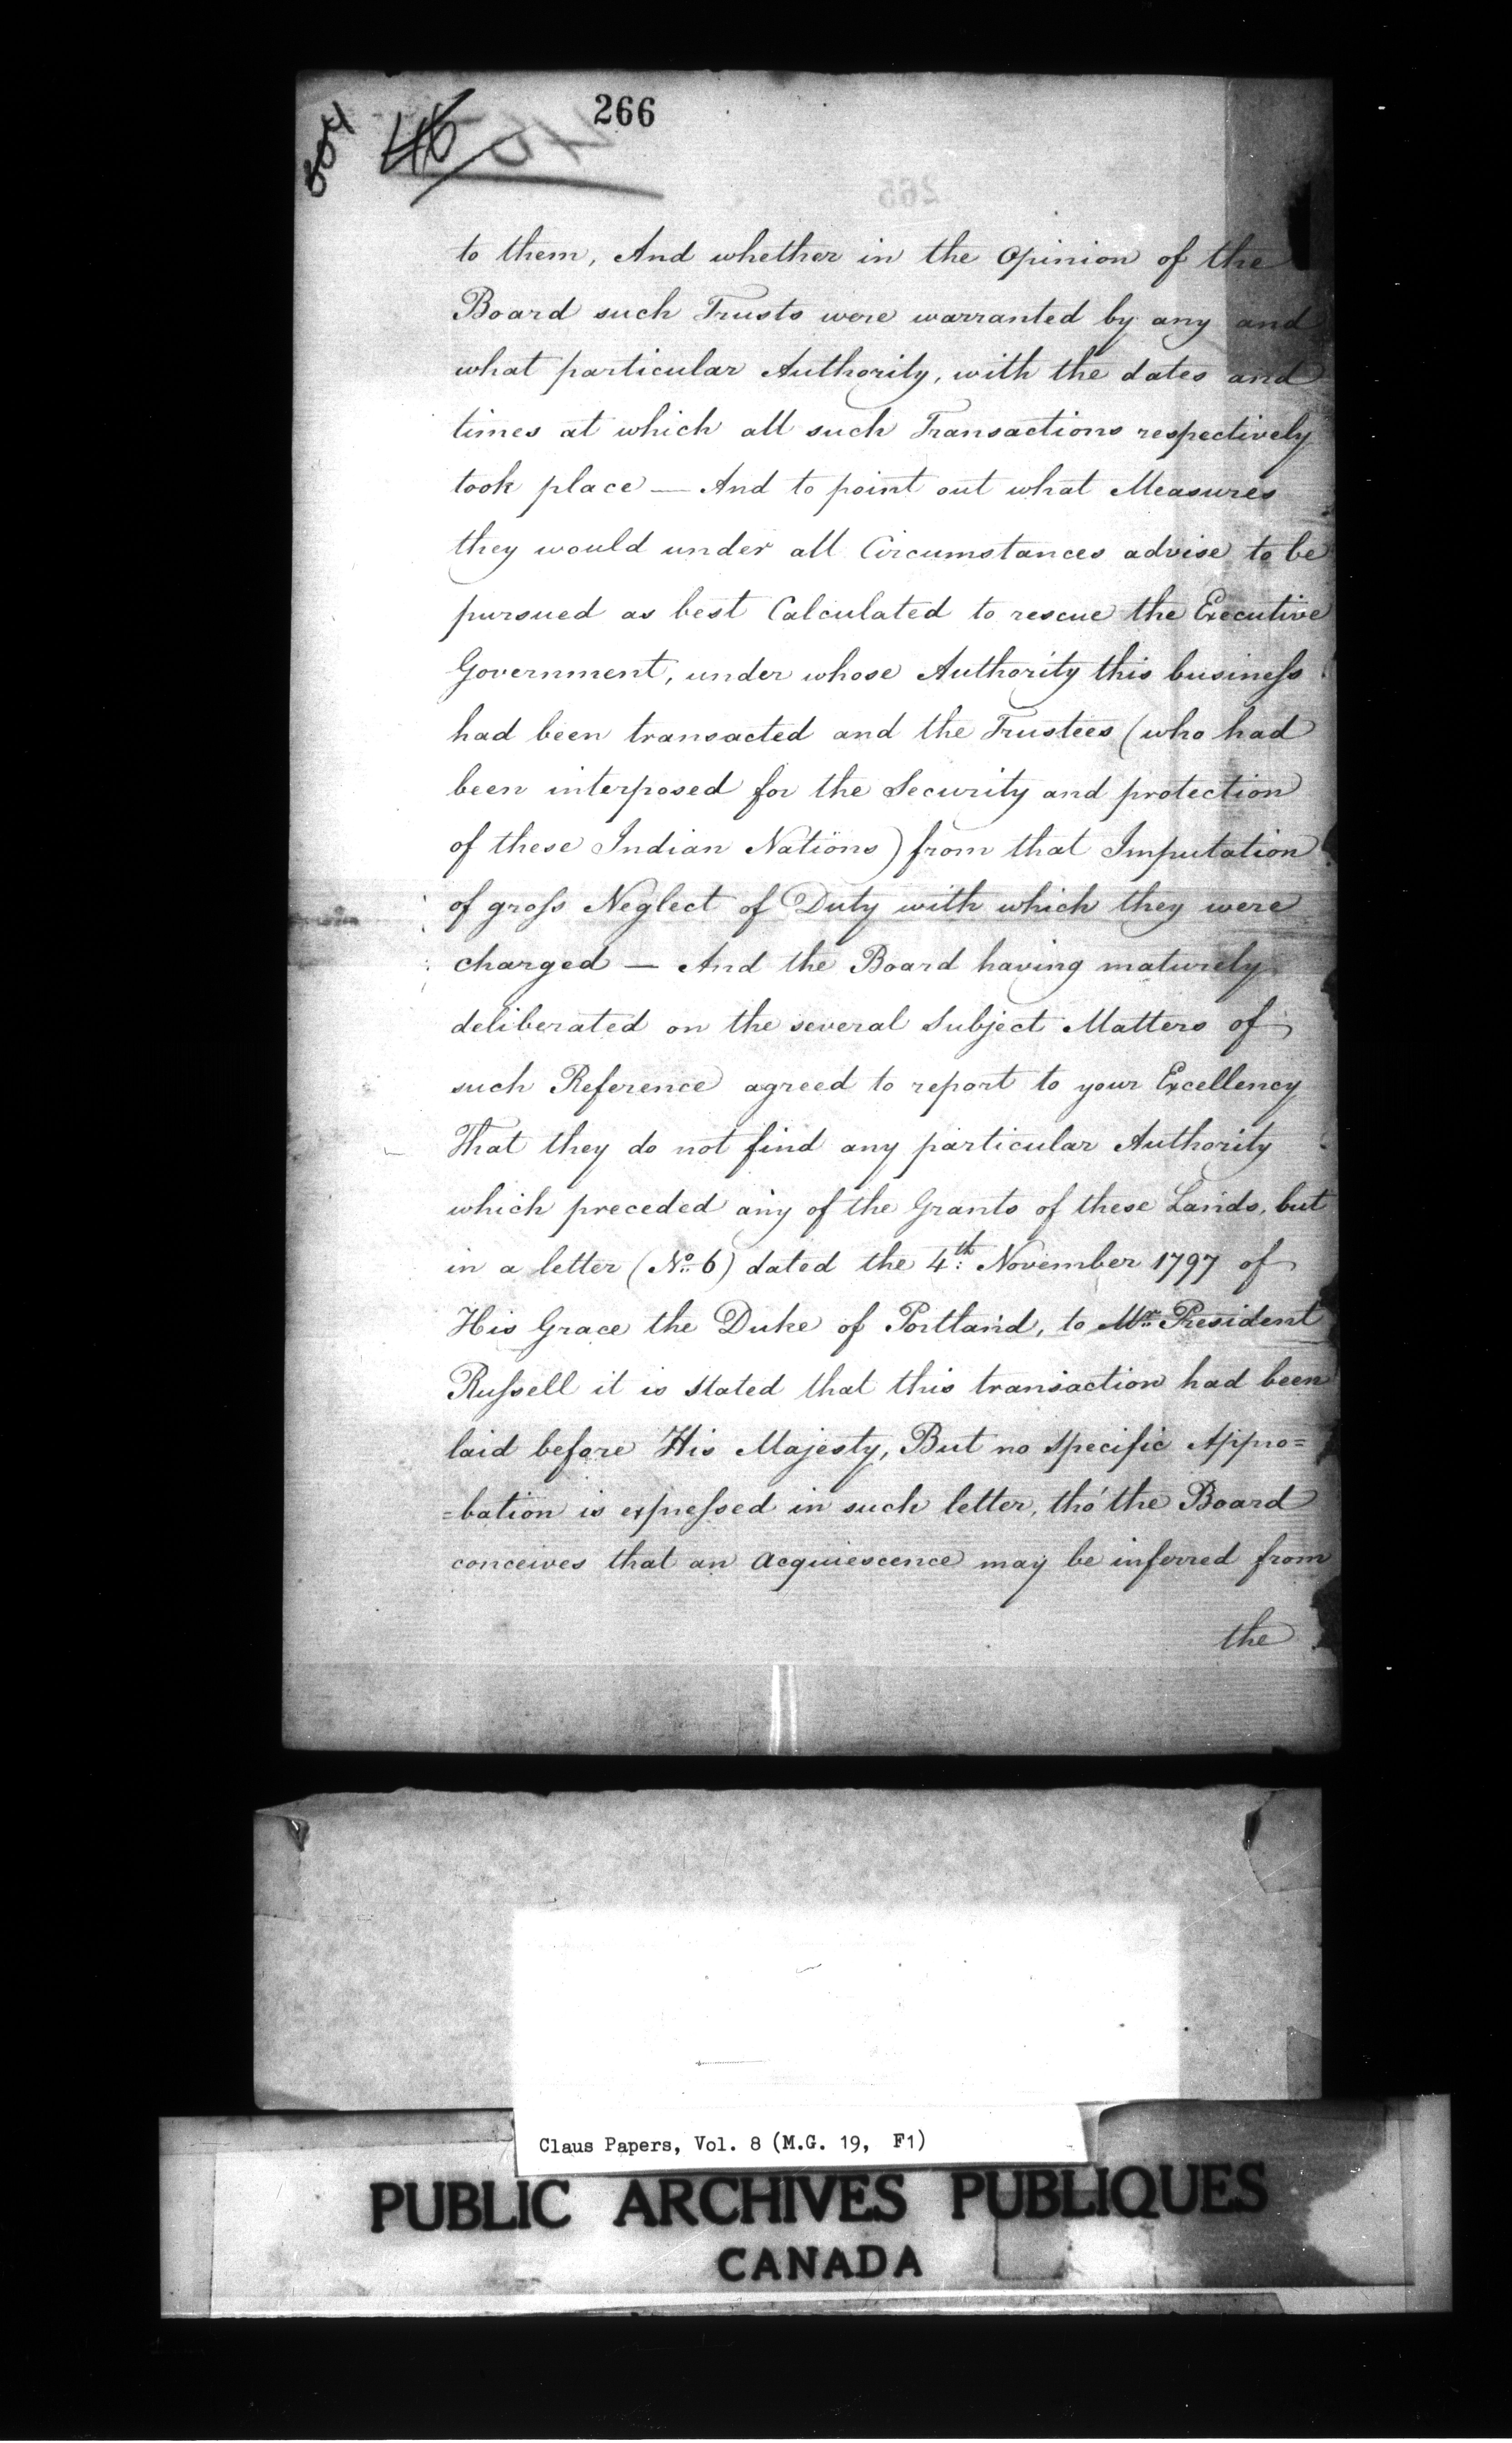 266
46
265
to them, And whether in the Opinion of the
Board such Trusts were warranted by any and
what particular Authority, with the dates and
times at which all such Transactions respectively
took place — And to point out what Measures
they would under all Circumstances advise to be
pursued as best Calculated to rescue the Executive
Government, under whose Authority this business
had been transacted and the Trustees (who had
been interposed for the Security and protection
of these Indian Nations) from that Imputation
of gross Neglect of Duty with which they were
charged — And the Board having maturely
deliberated on the several Subject Matters of
such Reference agreed to report to your Excellency
That they do not find any particular Authority
which preceded any of the Grants of these Lands, but
in a letter (No. 6) dated the 4th November 1797 of
His Grace the Duke of Portland, to Mr. President
Russell it is stated that this transaction had been
laid before His Majesty, But no specific Appro=
=bation is expressed in such letter, tho' the Board
conceives that an Acquiescence may be inferred from
the
Claus Papers, Vol. 8 (M.G. 19, F1)
PUBLIC ARCHIVES PUBLIQUES
CANADA